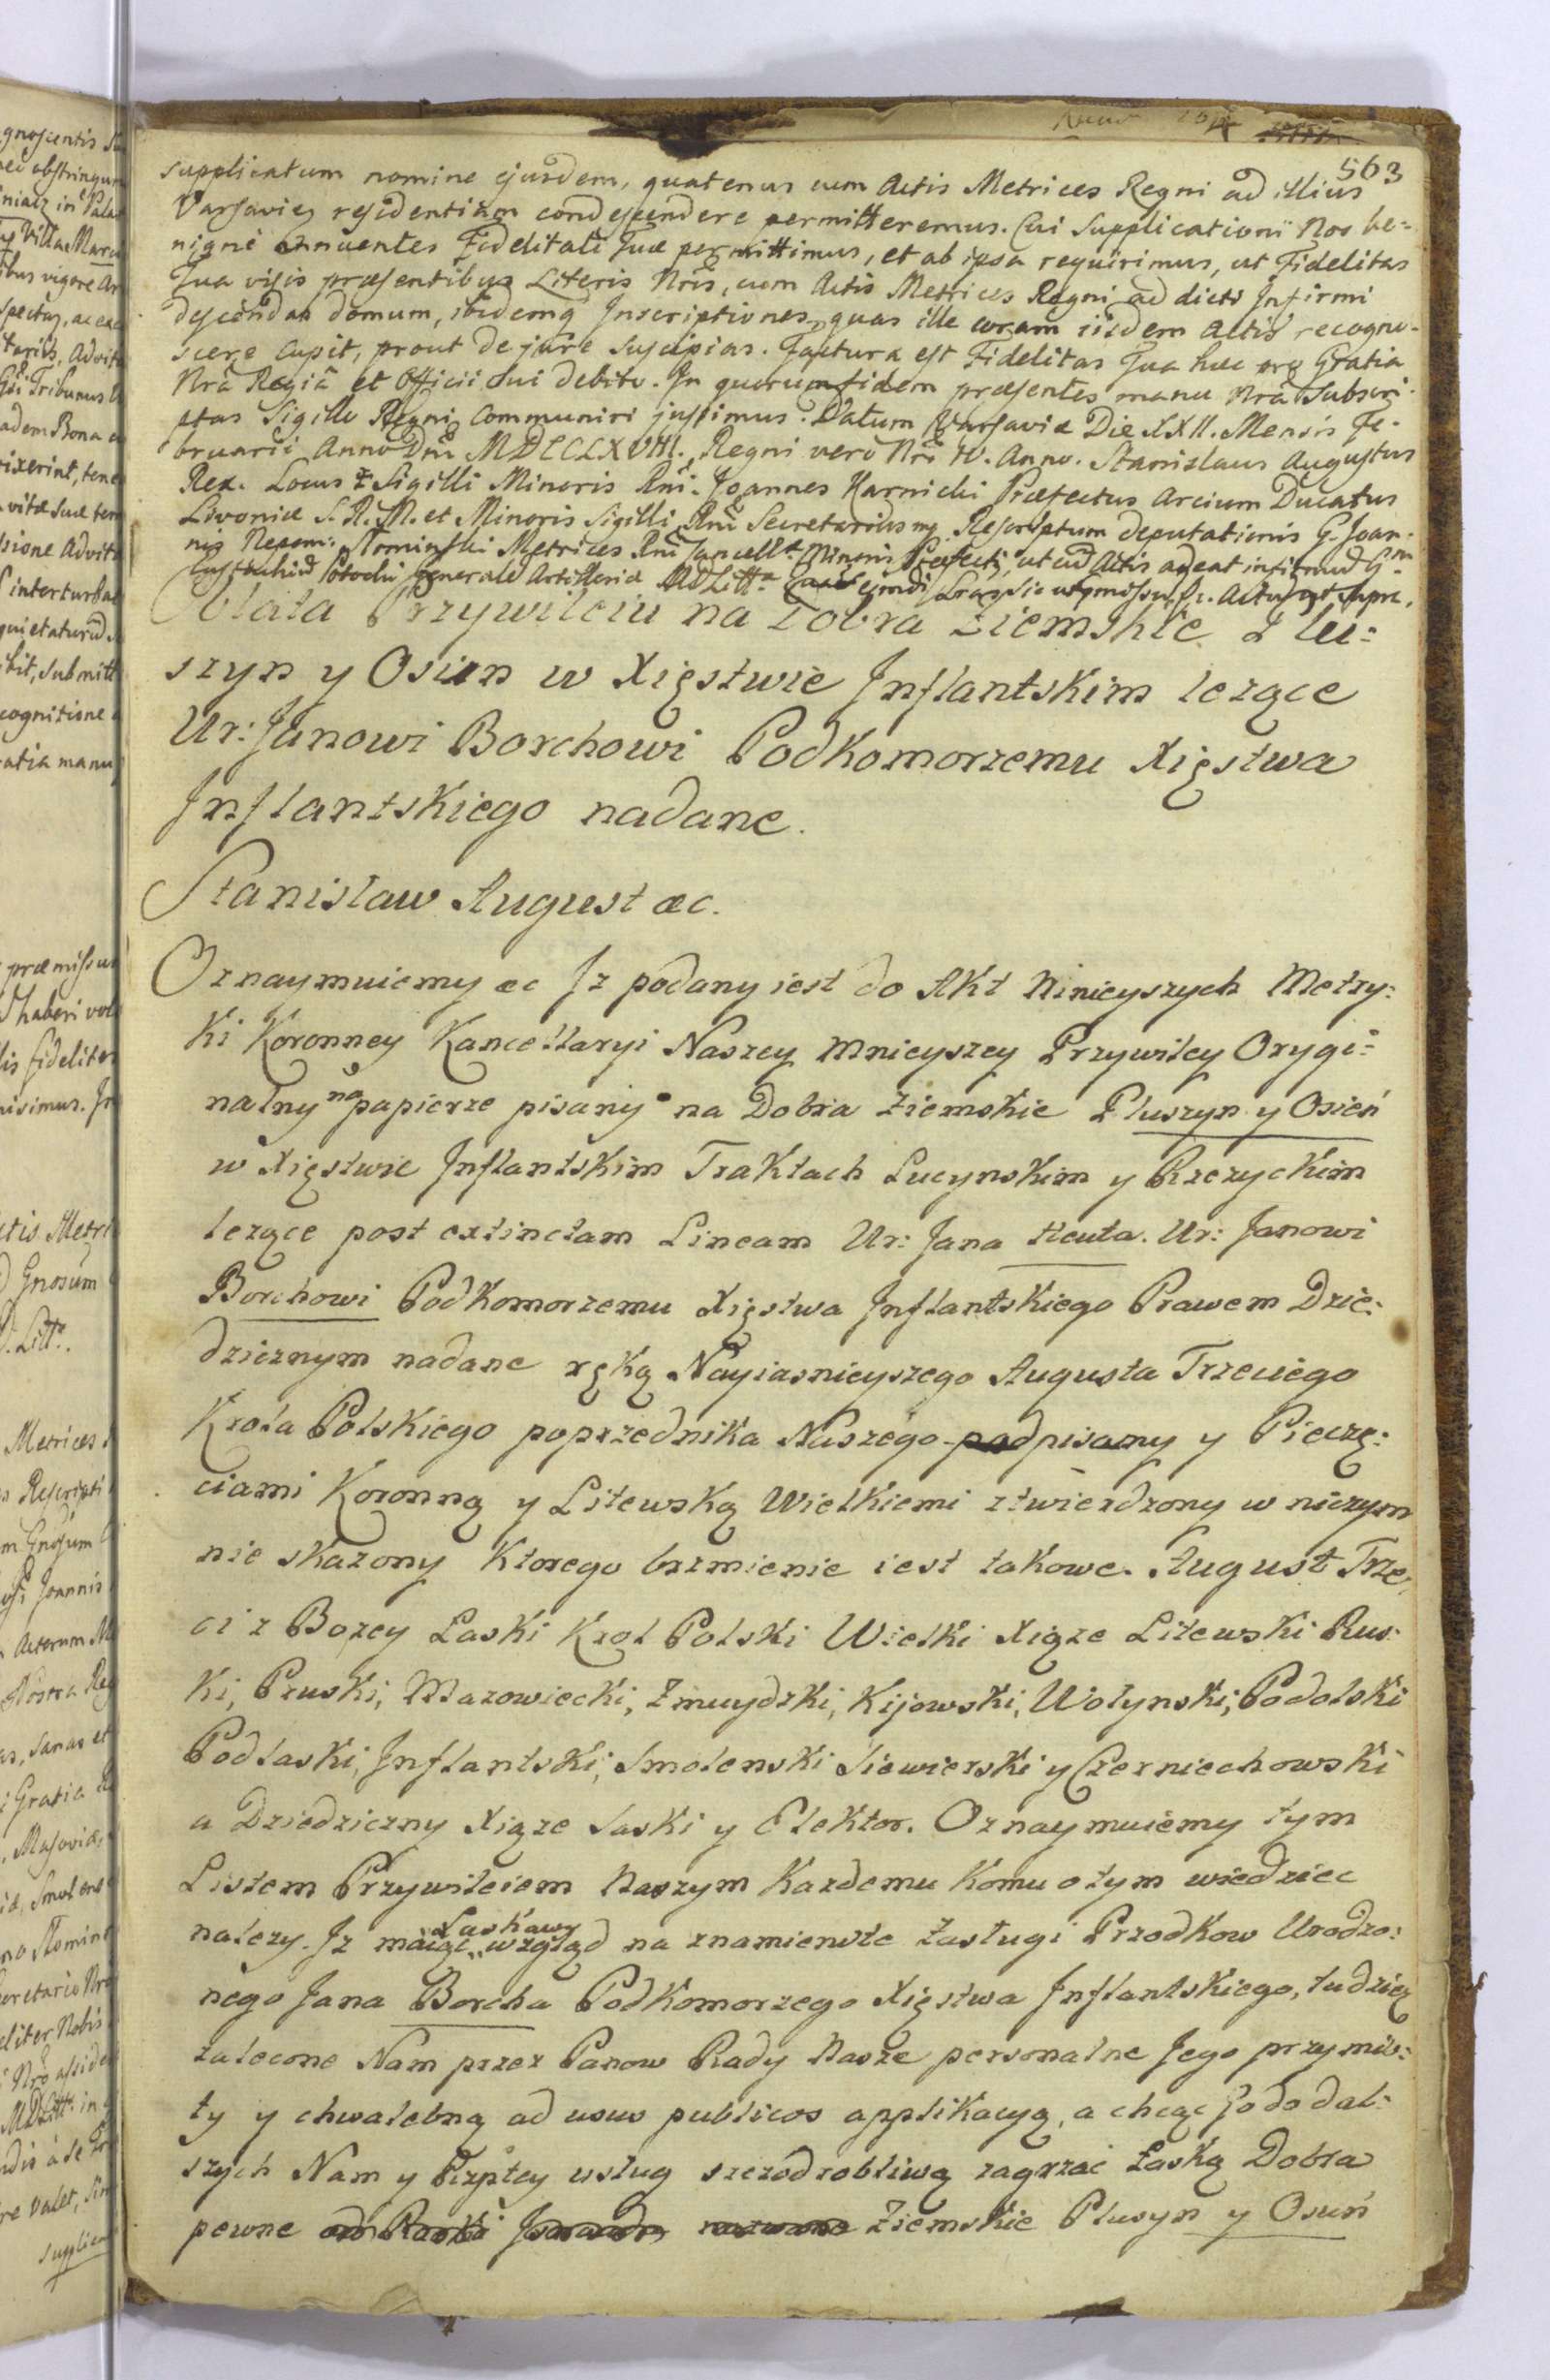 563
supplicatum nomine ejusdem, quatenus cum Actis Metrices Regni ad illius
Varsavię residentiam condescendere permitteremus. Cui supplicationi Nos be=
nigne annuentes Fidelitati Tuæ permittimus, et ab ipsa requirimus, ut Fidelitas
Tua visis præsentibus Literis Nris, cum Actis Metrices Regni ad dicti Infirmi
descendat domum, ibidemq Inscriptiones, quas ille coram iisdem Actis recogno-
scere cupit, prout de jure suscipias. Factura est Fidelitas Tua hæc pro Gratia
Nrâ Regiâ et Officii sui debito. In quorum fidem præsentes manu Nrâ Subscri-
ptas Sigillo Regni communiri jussimus. Datum Varsaviæ Die XXII. Mensis Fe-
bruarii Anno Dni MDCCLXVIII. Regni verò Nri IV. Anno. Stanislaus Augustus
Rex. Locus Sigilli Minoris Rni. Joannes Karnicki Præfectus Arcium Ducatus
Livoniæ S. R. M. et Minoris Sigilli Rni Secretarius mp. Rescriptum deputationis G. Joan-
nis Nepom: Słominski Metrices Rni Cancell. Minoris Præfecti, ut cum Actis adeat infirmum Gm
Eustachium Potocki Generalem Artilleriæ MDLitt.
Oblata Przywileiu na Dobra Ziemskie Plu=
szyn y Osiun w Xięstwie Inflantskim lezące
Ur: Janowi Borchowi Podkomorzemu Xięstwa
Inflantskiego nadane.
Stanisław August æc.
Oznaymuiemy æc Iz podany iest do Akt Ninieyszych Metry=
ki Koronney Kancellaryi Naszey Mnieyszey Przywiley Orygi=
nalny na papierze pisany na Dobra Ziemskie Pluszyn y Osień
w Xięstwie Inflantskim Traktach Lucynskim y Rzezyckim
lezące post extinctam Lineam Ur: Jana Reuta. Ur: Janowi
Borchowi Podkomorzemu Xięstwa Inflantskiego Prawem Dzie=
dzicznym nadane ręką Nayiasnieyszego Augusta Trzeciego
Krola Polskiego poprzednika Naszego podpisany y Pieczę=
ciami Koronną y Litewską Wielkiemi ztwierdzony w niczym
nie skazony ktorego brzmienie iest takowe. August Trze=
ci z Bozey Łaski Krol Polski Wielki Xiąze Litewski Rus=
ki, Pruski, Mazowiecki, Zmuydzki, Kijowski, Wołynski, Podolski
Podlaski, Inflantski, Smolenski Siewierski y Czerniechowski
a Dziedziczny Xiąze Saski y Elektor. Oznaymuiemy tym
Listem Przywileiem Naszym Kazdemu komu o tym wiedziec
nalezy. Iz maiąc Łaskawy wzgląd na znamienite Zasługi Przodkow Urodzo=
nego Jana Borcha Podkomorzego Xięstwa Inflantskiego, tudziez
zalecone Nam przez Panow Rady Nasze personalne Jego przymio=
ty y chwalebną ad usus publicos applikacyą, a chcąc Go do dal=
szych Nam y Rzpltey usług szczodrobliwą zagrzać Łaską Dobra
pewne Ziemskie Plusyn y Osuń